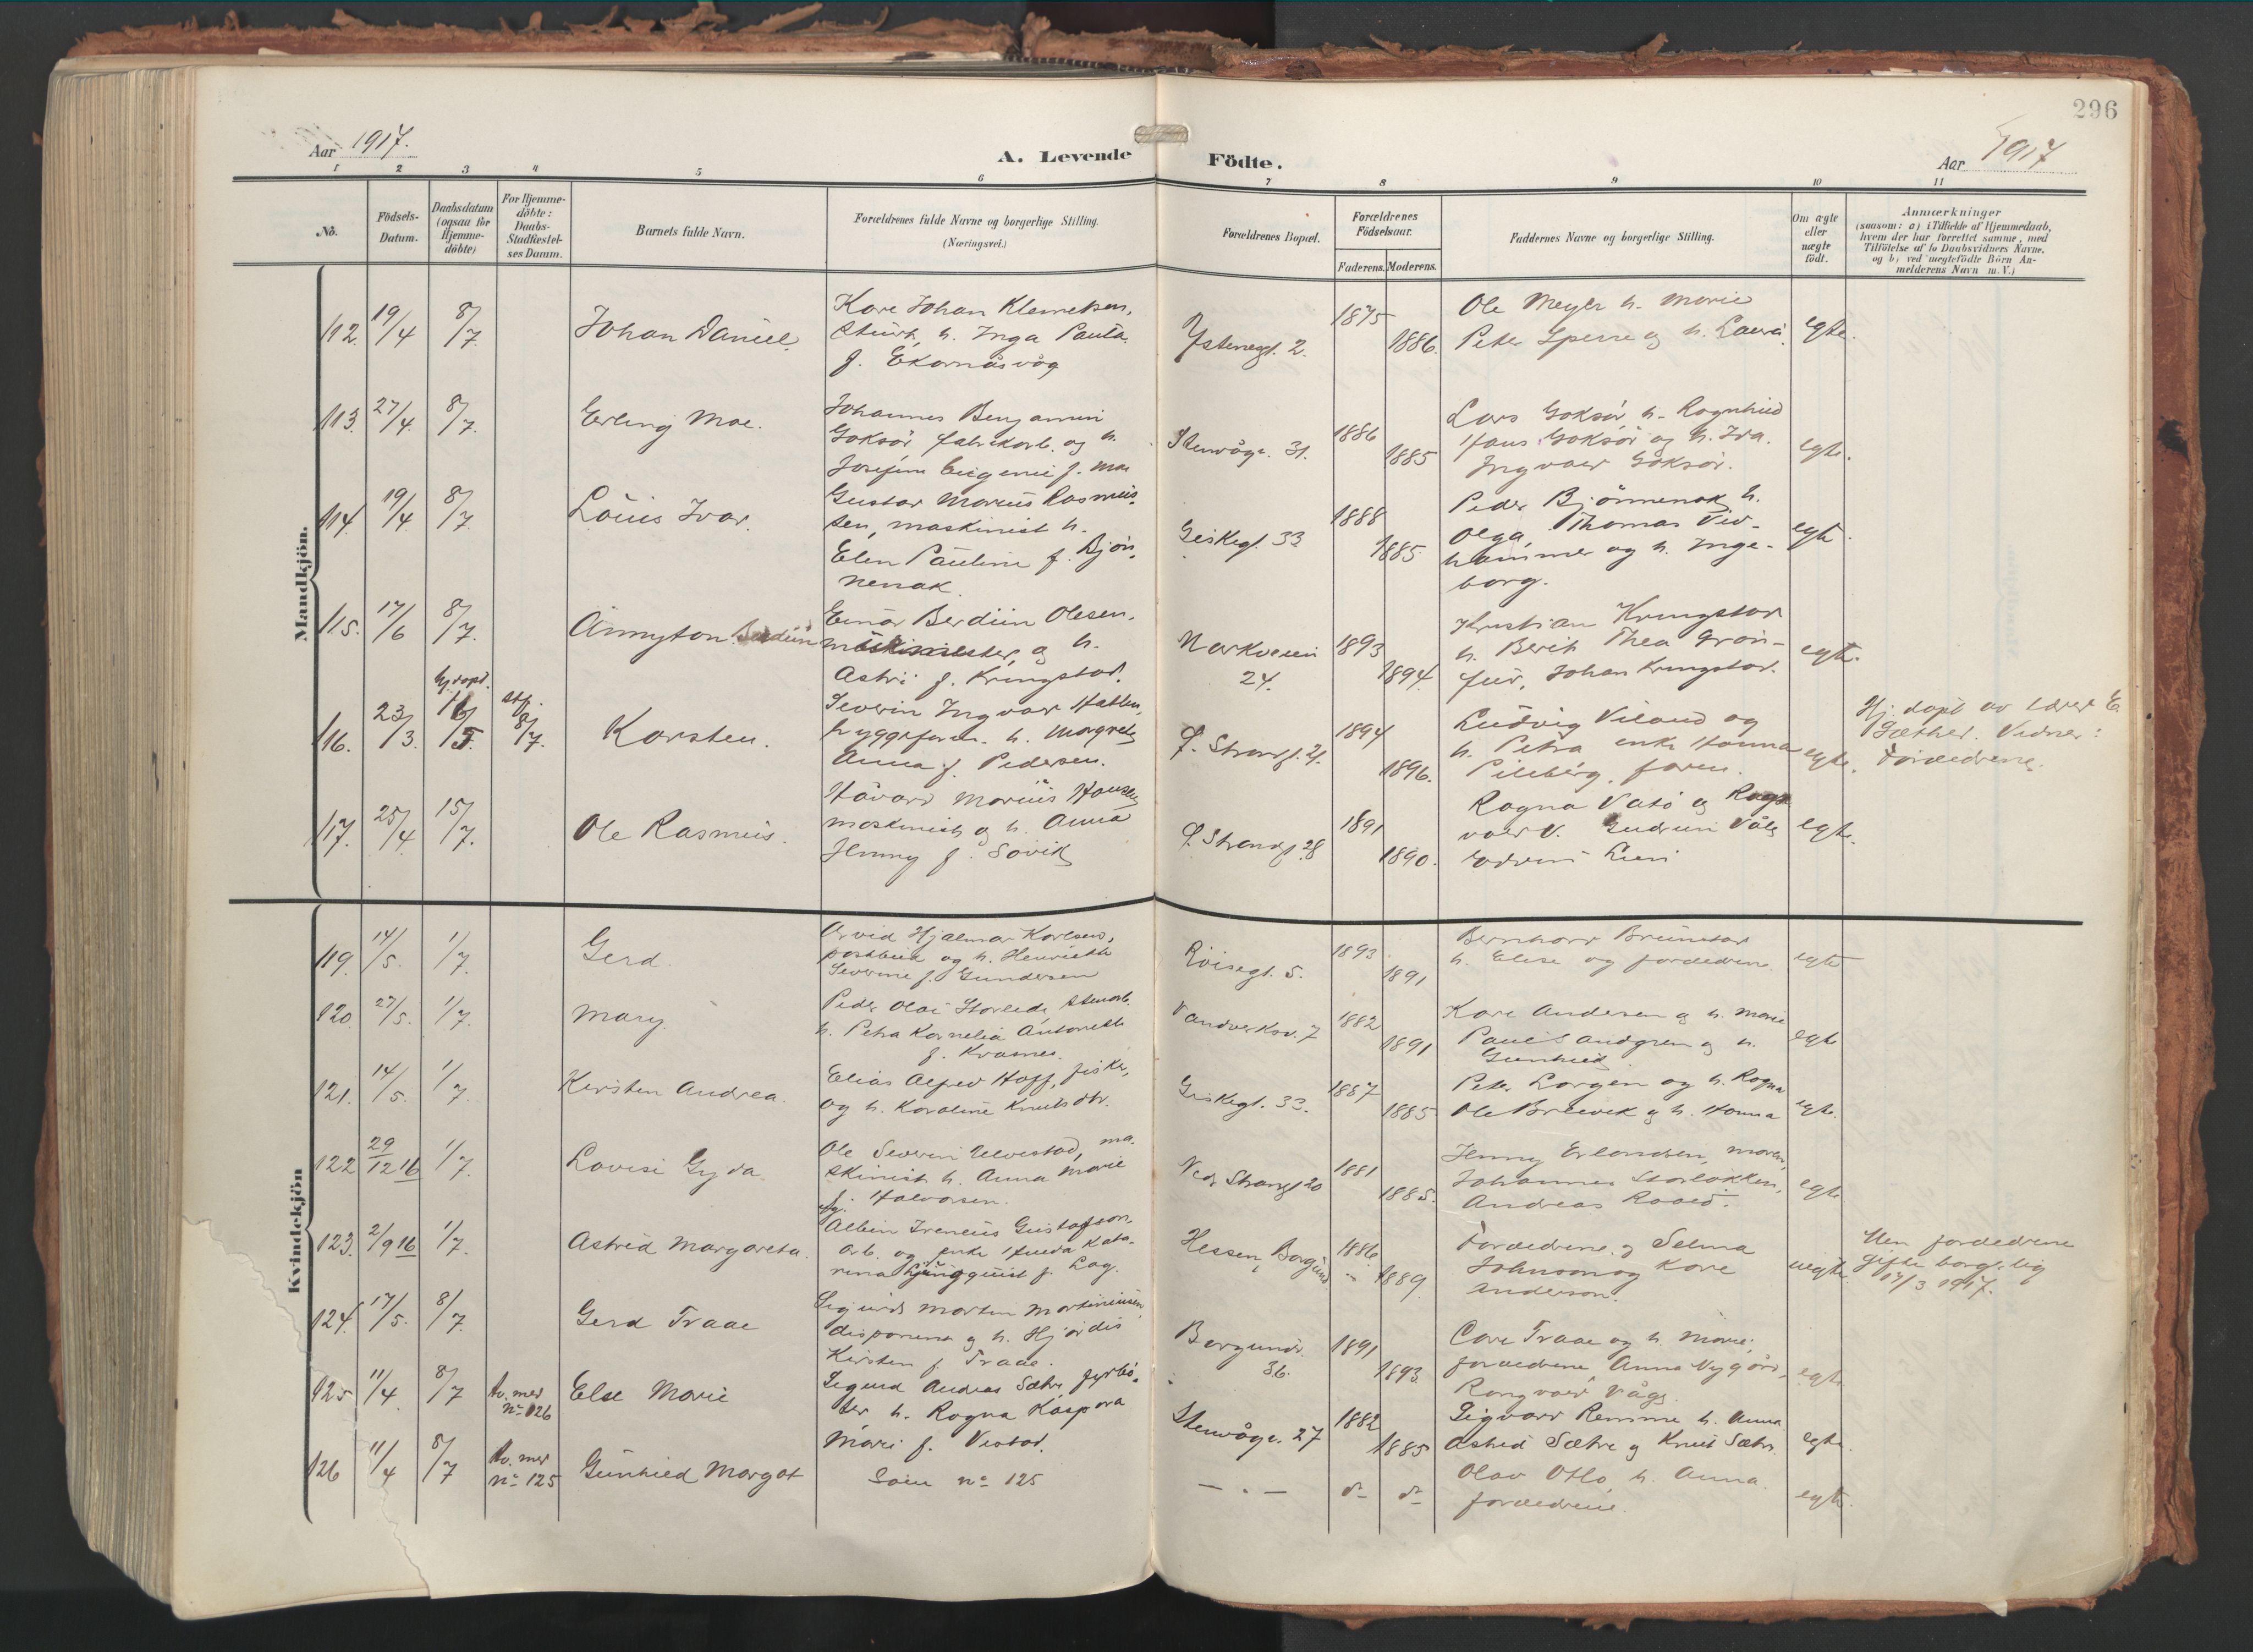 296
Aar 1917.
A. Levende
Födte.
Aar 1917
1 2 3 4 5 6 7 8 9 10 11
No.
Födsels-
Datum.
Daabsdatum
(ogsaa for
Hjemme-
döbte)
For Hjemme-
döbte:
Daabs-
Stadfæstel-
ses Datum.
Barnets fulde Navn.
Forældrenes fulde Navne og borgerlige Stilling.
(Næringsvei.)
Forældrenes Bopæl.
Forældrenes
Födselsaar.
Faderens.
Moderens.
Faddernes Navne og borgerlige Stilling.
Om ægte
eller
uægte
födt.
Anmærkninger
(saasom: a) i Tilfælde af Hjemmedaab,
hvem der har forrettet samme, med
Tilföielse af to Daabsvidners Navne,
og b) ved uægtefödte Börn An-
melderens Navn m. V.)
Mandkjön.
112. 19/4 8/7. Johan Daniel.
Kare Johan Klemetsen,
h. Inga Paula
f. Ekornåsvåg
Ystenesgt. 2. 1875 1886.
Ole Meyer h. Marie
Peter Sperre og h. Laura. egte.
113. 27/4. 8/7. Erling Moe.
Johannes Benjamin
Goksör fabrikarb. og h.
Josefine Eugenie f. Moe
Stenvågv. 31. 1886 1885
Lars Goksör h. Ragnhild
Hans Goksör og h. Ida.
Ingvald Goksör. egte.
114. 19/4 8/7. Louis Ivar.
Gustav Marius Rasmus-
sen, maskinist h.
Elen Pauline f. Bjön-
nenak.
Geiskegt. 33 1888 1885.
Peder Björnenak h.
Olga, Thomas Ved-
hammer og h. Inge-
borg. egte.
115. 17/6 8/7. Annyton Berdiin
Einar Berdiin Olesen,
og h.
Astri f. Kringstad.
Markveien
24. 1893 1894.
Kristian Kringstad
h. Berit Thea Grön-
fur, Johan Kringstad. egte.
116. 23/3. Hj.döpt. 16/5. stf. 8/7. Karsten.
Severin Ingvar Hatlen,
bryggeform. h. Margrete
Anna f. Pedersen.
Ö. Strandg. 21. 1894 1896.
Ludvig Viland og
h. Petra enke Hanna
Pilebérg, faren. egte.
Hj. döpt av lærer E.
Gæther. Vidner:
Forældrene.
117. 25/4 15/7. Ole Rasmus.
Håvard Marius Hansen
maskinist og h. Anna
Jenny f. Sövik
Ö. Strandg. 28 1891 1890.
Ragna Vatö og Ragn
vald V. Gudrun Våg
egte.
Kvindekjön
119. 14/5. 1/7. Gerd.
Arvid Hjalmar Karlsen,
postbud og h. Henriette
Severine f. Gundersen
Röisegt. 5. 1893. 1891
Bernhard Brunstad
h. Elise og forældrene egte
120. 27/5. 1/7. Mary.
Peder Olai Storlede, stenarb.
h. Petra Kornelia Antonette
f. Kvasnes.
Vandverksv. 7 1882 1891
Kare Andersen og h. Marie
Paul Sandgren og h.
Gunhild egte
121. 14/5. 1/7. Kirsten Andrea.
Elias Alfred Hoff, fisker,
og h. Karoline Knutsdtr.
Geiskegt. 33. 1887 1885
Peter Largen og h. Ragna
Ole Breivik og h. Hanna egte.
122 29/12 16 1/7. Lovise Gyda.
Ole Severin Ulvestad, ma-
skinist h. Anna Marie
f. Halvorsen.
Ned. Strandg 20 1881 1885.
Jenny Erlandsen, moren,
Johannes Storlökken,
Andreas Roald. egte
123. 2/9 16 1/7. Astrid Margareta.
Albin Ireneus Gustafson,
arb. og enke Hulda Kata-
rina Ljungquist f. Lag.
Hessen, Borgund 1886 1889
Forældrene og Selma
Johnson og Kare
Anderson. uegte.
Men forældrene
gifte borgerlig
17/3 1917.
124. 17/5. 8/7. Gerd Traae
Sigurd Morten Martiniusen
disponent og h. Hjördis
Kirsten f. Traae.
Borgundv.
36. 1891 1893.
Care Traae og h. Marie,
forældrene, Anna Nygård,
Rangvald Våge. egte.
125 11/4 8/7 tv. med
No 126 Else Marie
Sigurd Andreas Sætre, fyrbö-
ter h. Ragna Kaspora
Mari f. Vestad.
Stenvågv. 27 1882 1885
Sigvard Remme h. Anna
Astrid Sætre og Knut Sætre egte.
126 11/4 8/7 tv. med
No 125 Gunhild Margot
Som no 125
— " — do do
Olav Otlo, h. Anna
forældrene. egte.